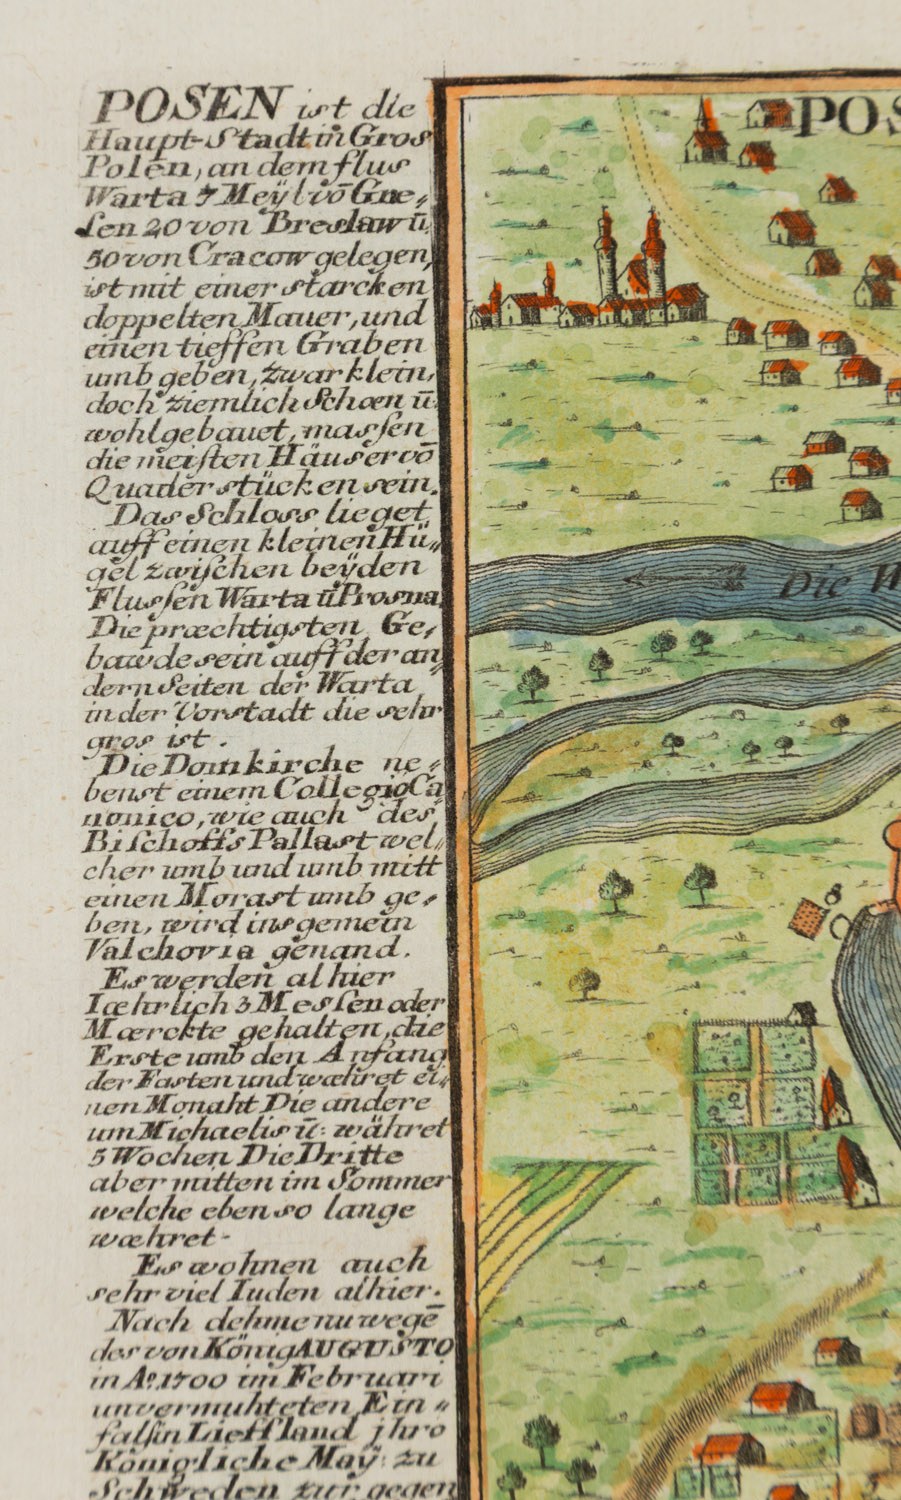 POSEN ist die
Haupt-Stadt in Gros
Polen, an dem flus
Warta 7 Meÿl vō Gne-
sen 20 von Breslaw ū,
50 von Cracow gelegen,
ist mit einer starcken
doppelten Mauer, und
einen tieffen Graben
umb geben, zwar klein,
doch ziemlich Schœn ū:
wohl gebauet, massen
die meisten Häuser vō
Quader stücken sein.
Das Schloss lieget
auff einen kleinen Hü-
gel zwischen beÿden
Flussen Warta ū Prosna,
Die præchtigsten Ge-
bawde sein auff der an
dern Seiten der Warta
in der Vorstadt die sehr
gros ist.
Die Domkirche ne-
benst einem Collegio Ca
nonico, wie auch des
Bischoffs Pallast wel-
cher umb und umb mitt
einen Morast umb ge-
ben, wird ins gemein
Valchovia genand.
Es werden alhier
Iæhrlich 3 Messen oder
Mærckte gehalten, die
Erste umb den Anfang
der Fasten und wæhret ei-
nen Monaht Die andere
um Michaelis ū: währet
5 Wochen Die Dritte
aber mitten im Sommer
welche eben so lange
wæhret.
Es wohnen auch
sehr viel Iuden alhier.
Nach dehme nu wegē
des von König AUGUSTO
in Aº. 1700 im Februari
unvermuhteten Ein-
fals in Lieffland jhro
Königliche Maÿ: zu
Schweden zur gegen
POS
Die W